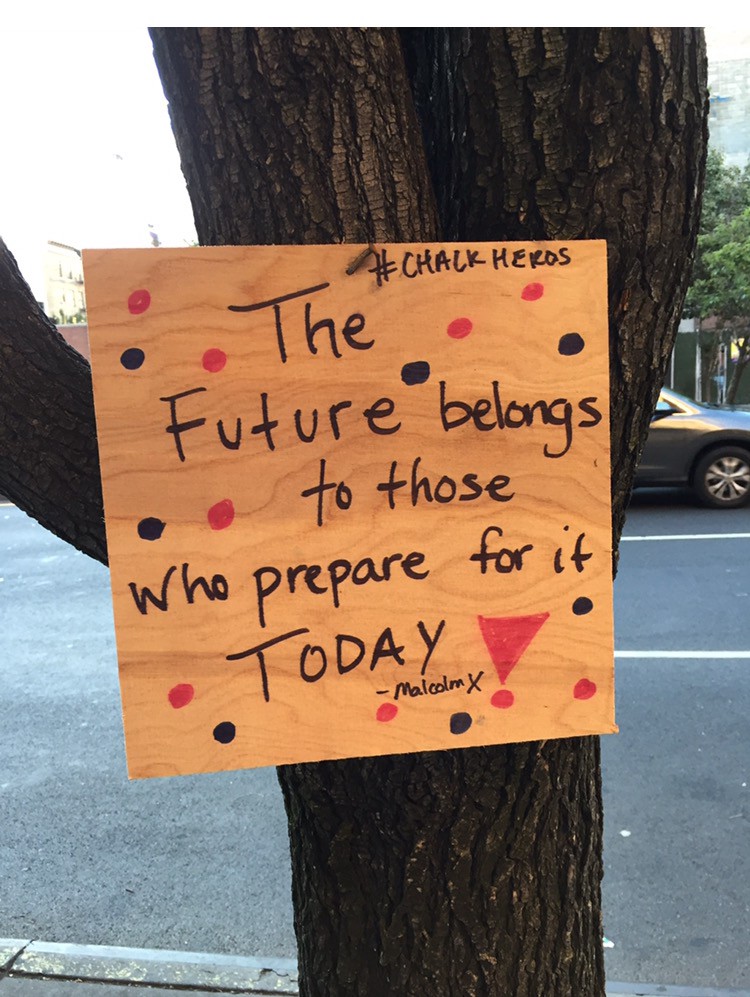 #CHALK HEROS
The
Future belongs
to those
who prepare for it
TODAY
- Malcolm X